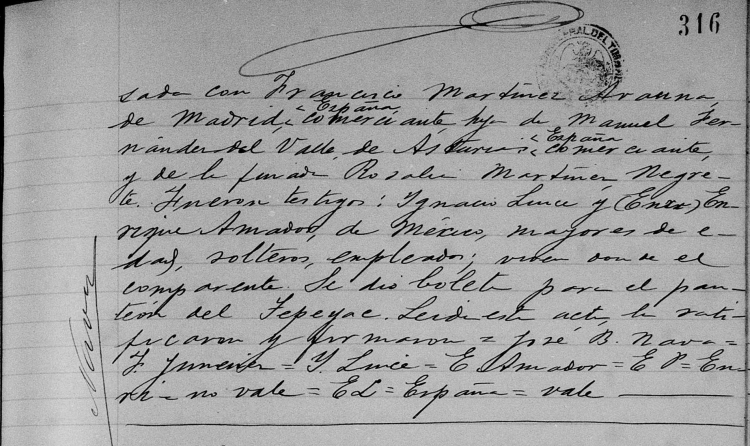 316
sada con Francisco Martinez Arauna,
de Madrid, España, comerciante, hija de Manuel Fer-
nández del Valle, de Asturias, España, comerciante,
y de la finada Rosalia Martinez Negre-
te. Fueron testigos: Ignacio Luice y (Enri) En-
rique Amador, de México, mayores de e-
dad, solteros, empleados; viven donde el
comparente. Se dió boleta para el pan-
teón del Tepeyac. Leida esta acta, la rati-
ficaron y firmaron = José B. Nava =
F. = Y. Luice = E Amador = E P = En-
ri = no vale = E L = España = vale
Nava